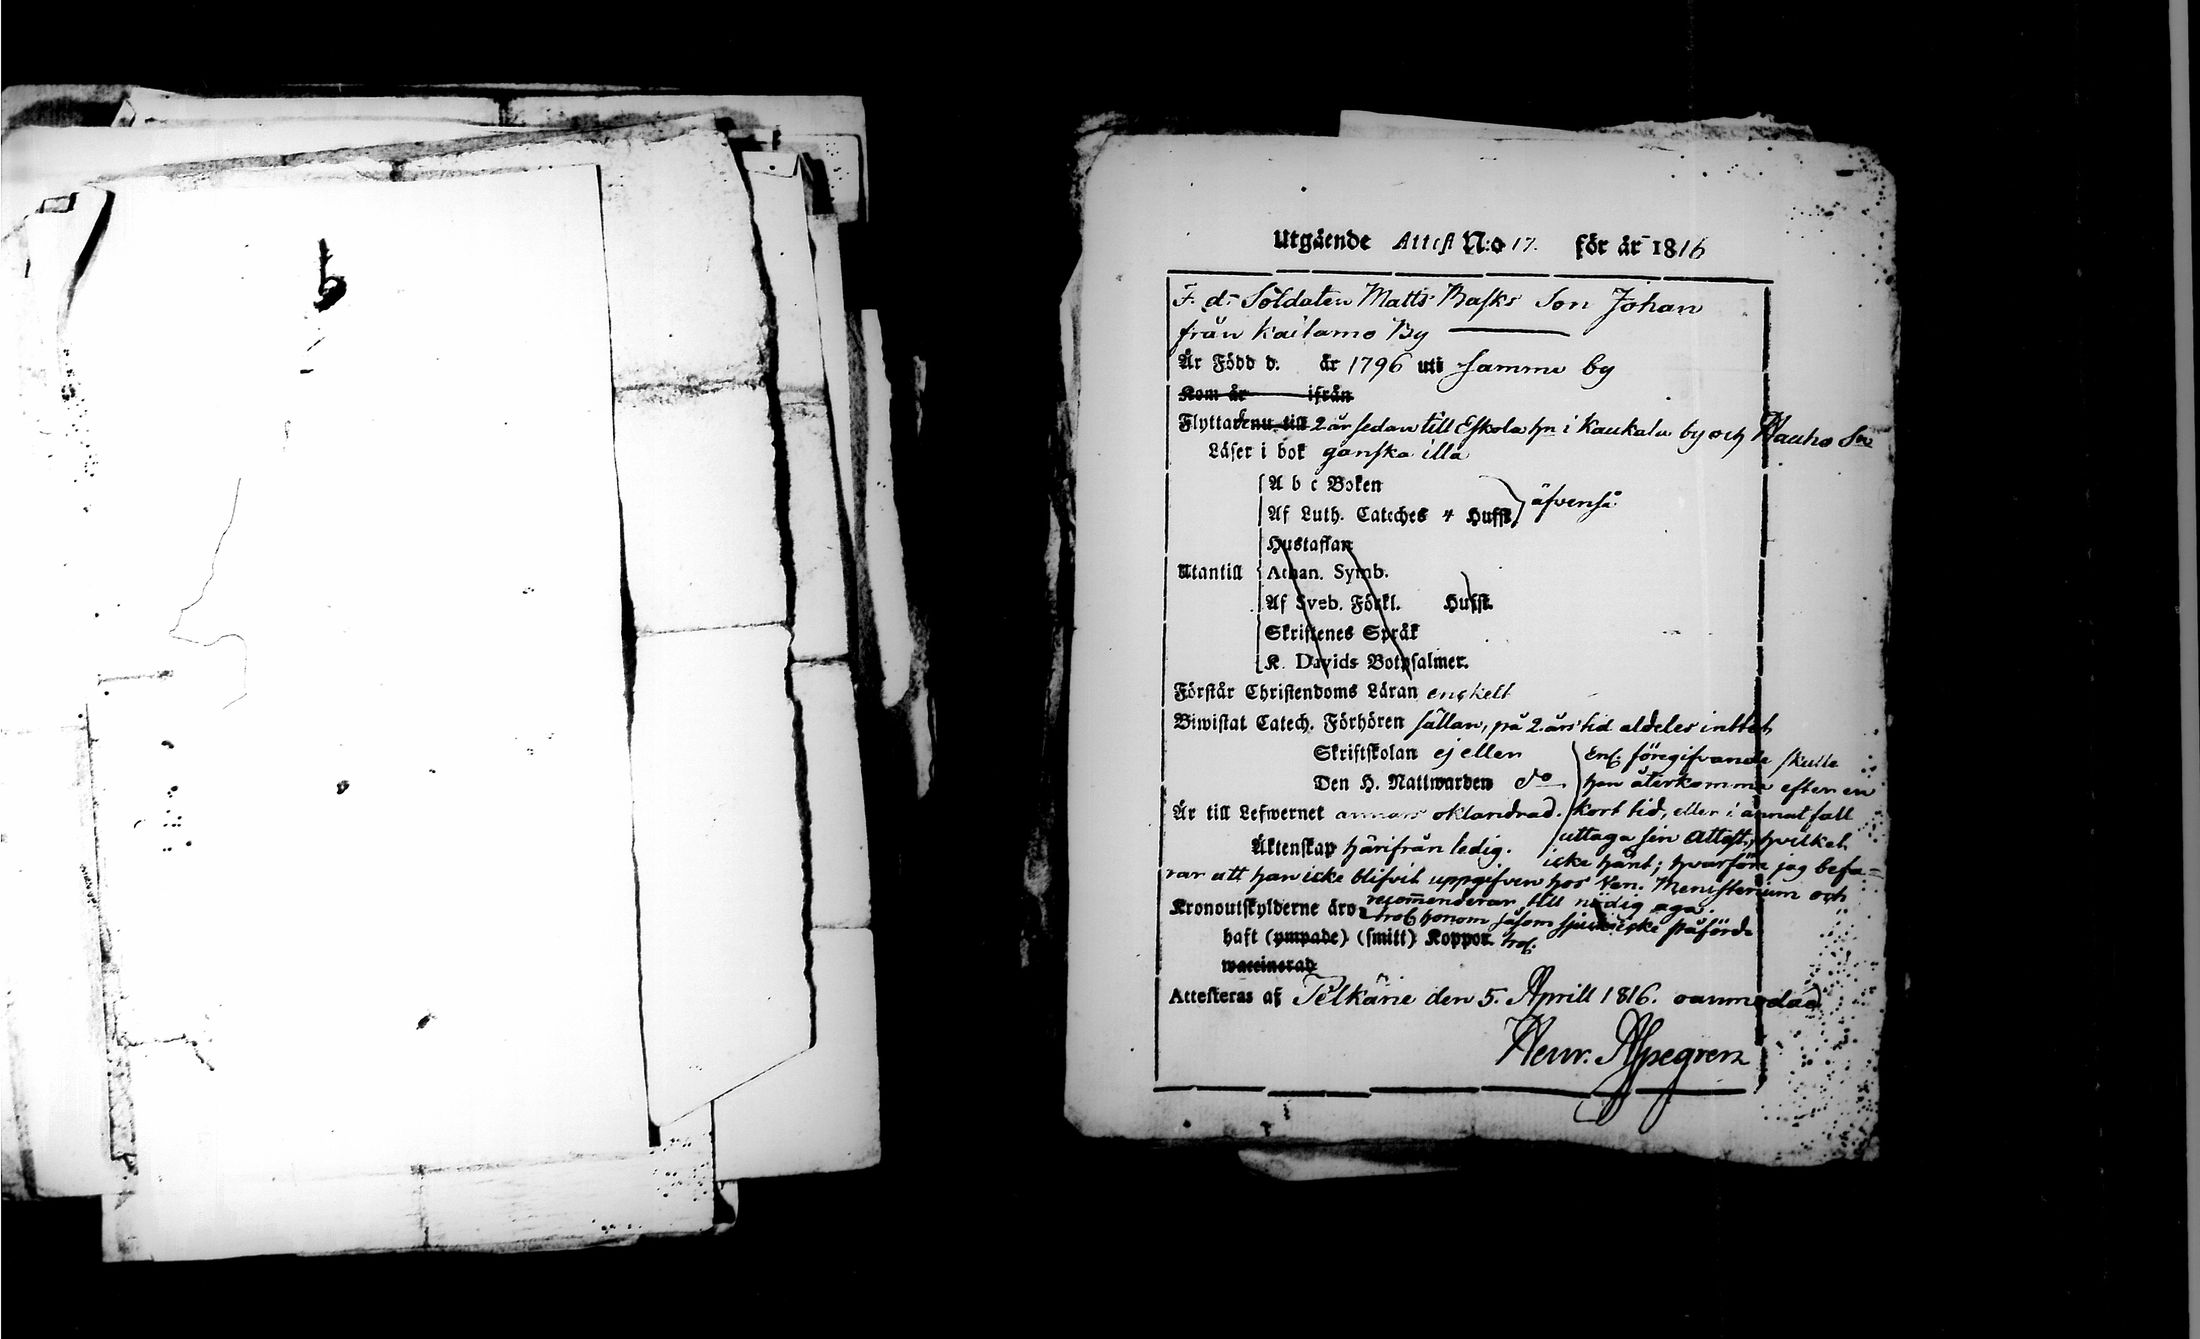 Utgående Attest N:o 17. för år 1816
F. d. Soldaten Matts Rasks Son Johan
från Kailamo By
Är Född d. år 1796 uti samma by
Kom år ifrån
Flyttade nu till 2 år sedan till Eskola hn i Kaukala by och Hauho Sn
Läser i bok ganska illa
A b c Boken
Af Luth. Cateches 4 Hufst. äfvenså
Hustaflan
Utantill Athan. Symb.
Af Sveb. Förkl. Hufst.
Skriftenes Språk
K. Davids Botpsalmer.
Förstår Christendoms Läran enskelt
Biwistat Catech. Förhören sällan, på 2 års tid aldeles inttet
Skriftskolan ej eller
Den H. Nattwarden do
Enl. föregifvande skulle
han återkomma efter en
kort tid, eller i annat fall
uttaga sin Attest, hvilket
icke händt; hvarföre jag befa=
rar att han icke blifvit uppgifven hos Ven. Ministerium och
recommenderar till nödig aga.
Är till Lefwernet annars oklandrad.
Äktenskap härifrån ledig.
Kronoutskylderne äro honom såsom icke påförde
haft (ympade) (smitt) Koppor.
waccinerad
Attesteras af Pelkäne den 5. Aprill 1816.
Henr. Alpegren